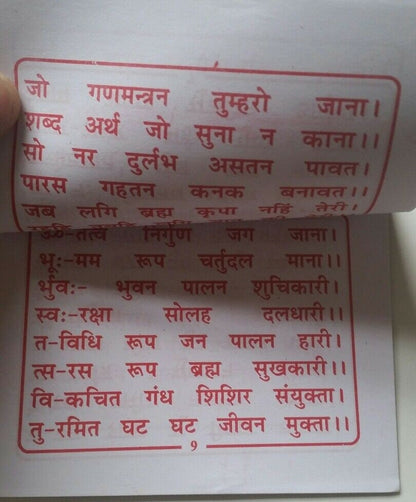 जो गणमन्त्रन तुम्हरो जाना।
शब्द अर्थ जो सुना न काना।।
सो नर दुर्लभ असतन पावत।
पारस गहतन कनक बनावत।।
जब लगि ब्रह्म कृपा नहिं तेरी।
तत्व निर्गुण जग जाना।
भूः-मम रूप चर्तुदल माना।।
र्भुवः- भुवन पालन शुचिकारी।
स्वः-रक्षा सोलह दलधारी।।
त-विधि रूप जन पालन हारी।
त्स-रस रूप ब्रह्म सुखकारी।।
वि-कचित गंध शिशिर संयुक्ता।
तु-रमित घट घट जीवन मुक्ता।।
9